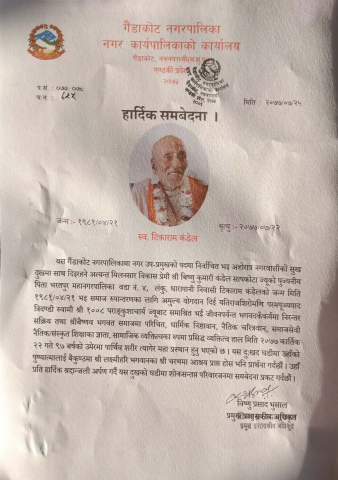 गैंडाकोट नगरपालिका
नगर कार्यपालिकाको कार्यालय
गैंडाकोट, नवलपरासी
गण्डकी प्रदेश
२०७७
प.सं. : ०७७-०७८
च.न. :
मिति : २०७७/०७/२५
हार्दिक समबेदना ।
जन्म :- १९८१/०४/२१
मृत्यु :- २०७७/०७/२२
स्व. टिकाराम कंडेल
यस गैंडाकोट नगरपालिकामा नगर उप-प्रमुखको पदमा निर्वाचित भइ अहोरात्र नगरवासीको सुख
दुखमा साथ दिइरहने अत्यन्त मिलनसार विकास प्रेमी श्री बिष्णु कुमारी कंडेल सापकोटा ज्यूको पुज्यनीय
पिता भरतपुर महानगरपालिका वडा नं. ४, लंकु, धारापानी निवासी टिकाराम कंडेलको जन्म मिति
१९८१/०४/२१ भइ समाज रुपान्तरणका लागि अमुल्य योगदान दिई यतिराजशिरोमणि परमपुज्यपाद
त्रिदण्डी स्वामी श्री १००८ पराङ्कुशाचार्य ज्यूबाट समाश्रित भई जीवनपर्यन्त भगवनकैंकर्यमा निरन्तर
सक्रिय तथा श्रीबैष्णव भगवत समाजमा परिचित, धार्मिक निष्ठावान, नैतिक चरित्रवान, समाजसेवी
नैतिक/संस्कृत शिक्षाका ज्ञाता, सामाजिक व्यक्तित्वका रुपमा प्रसिद्ध व्यक्तित्व हाल मिति २०७७ कार्तिक
२२ गते ९७ बर्षको उमेरमा पार्थिव शरीर त्यागेर महा प्रस्थान हुनु भएको छ। यस दुःखद घडीमा उहाँको
पुण्यात्मालाई बैकुण्ठमा श्री लक्ष्मीहरि भगवानका श्री चरणमा आश्रय प्राप्त होस भनि प्रार्थना गर्दछौं। उहाँ
प्रति हार्दिक श्रद्धान्जली अर्पण गर्दै यस दुखको घडीमा शोकसन्तप्त परिवारजनमा समबेदना प्रकट गर्दछौं।
विष्णु प्रसाद भुसाल
प्रमुख प्रशासकीय अधिकृत